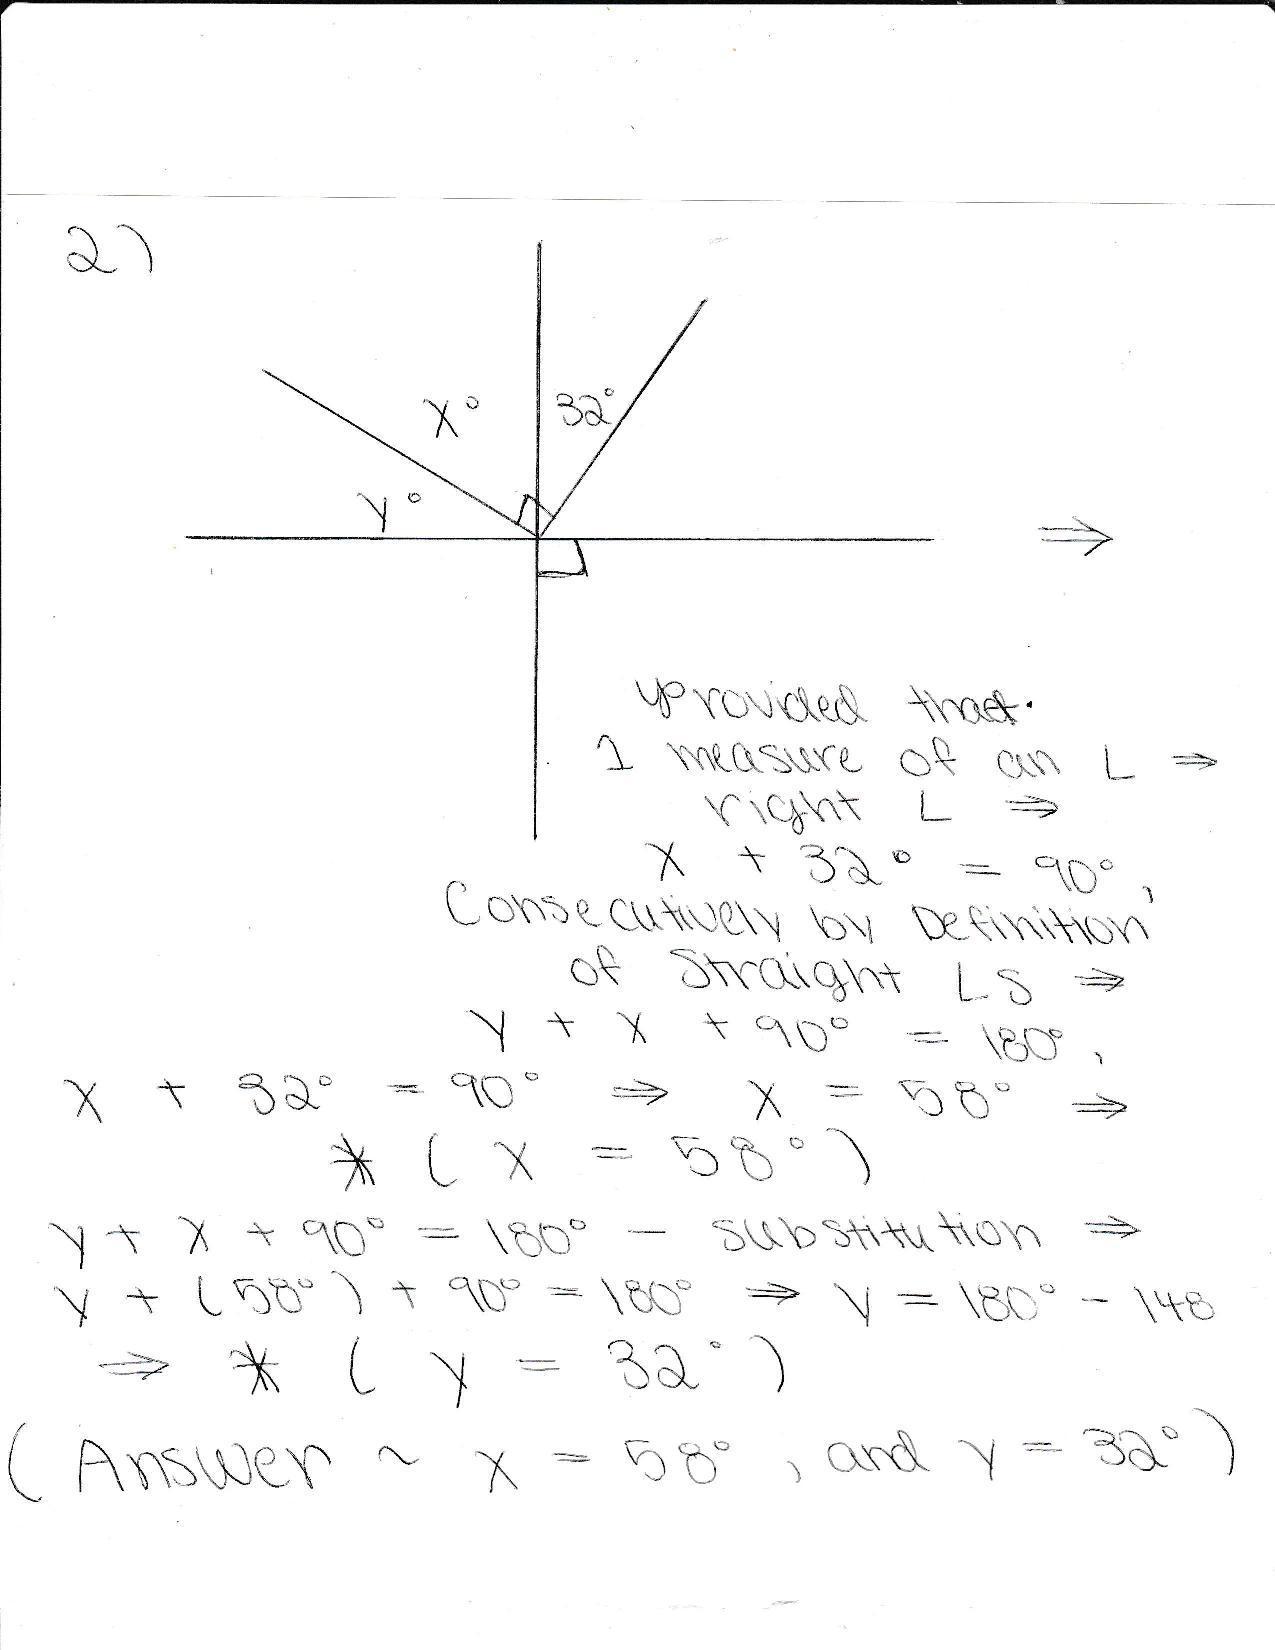 2)
X° 32°
Y°
⇒
provided that.
1 measure of an L ⇒
right L ⇒
X + 32° = 90°,
Consecutively by Definition
of Straight LS ⇒
Y + X + 90° = 180°,
X + 32° = 90° ⇒ X = 58° ⇒
* ( X = 58° )
Y + X + 90° = 180° - substitution ⇒
Y + (58°) + 90° = 180° ⇒ Y = 180° - 148
⇒ * ( Y = 32° )
( Answer ~ X = 58°, and Y = 32° )